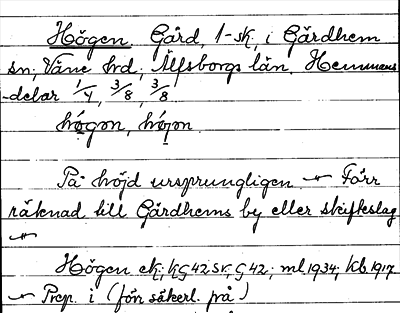 Högen. Gård, 1-sk, i Gärdhem
sn, Väne hrd, Älfsborgs län, Hemmans
-delar 1/4, 3/8, 3/8
hö́gɔn, hö́jɔn.
På höjd ursprungligen. — Förr
räknad till Gärdhems by eller skifteslag
—
Högen ek, kG42 sv, G42; ml 1934, kb 1917
— Prep. i (förr säkerl. på)